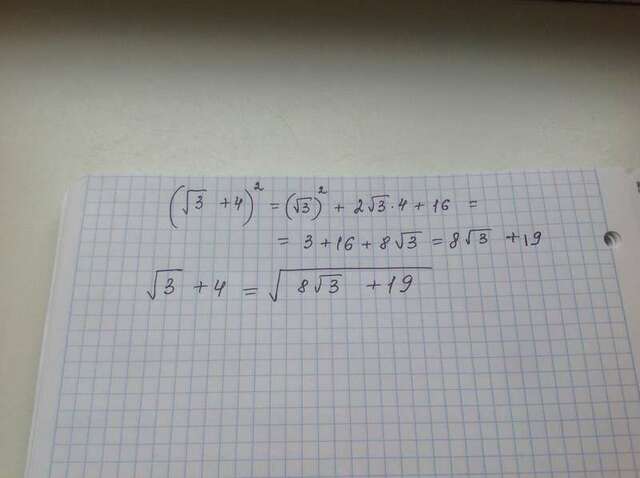 (√3 + 4)² = (√3)² + 2√3 · 4 + 16 =
= 3 + 16 + 8√3 = 8√3 + 19
√3 + 4 = √(8√3 + 19)